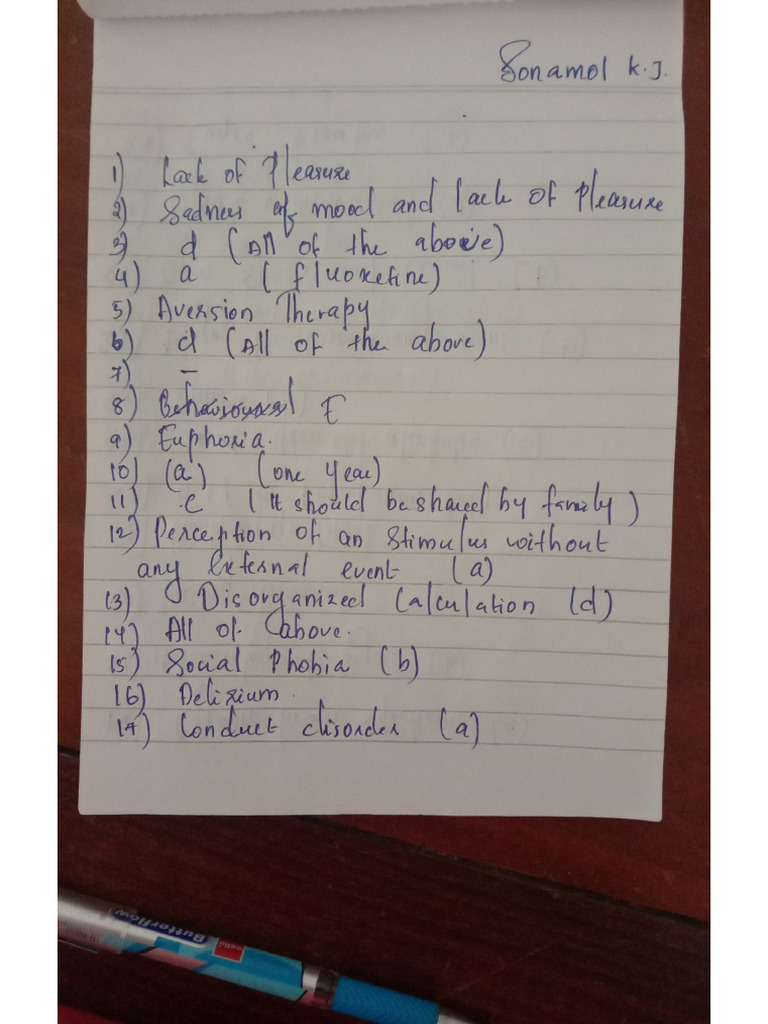 Sonamol K.J.
1) Lack of Pleasure
2) Sadness of mood and lack of pleasure
3) d (All of the above)
4) a (fluoxetine)
5) Aversion Therapy
6) d (All of the above)
7) -
8) Behavioural E
9) Euphoria.
10) (a) (one year)
11) c (It should be shared by family)
12) Perception of an stimulus without
any external event (a)
13) Disorganized Calculation (d)
14) All of above.
15) Social Phobia (b)
16) Delirium.
17) Conduct disorder (a)
Butterflow
cello